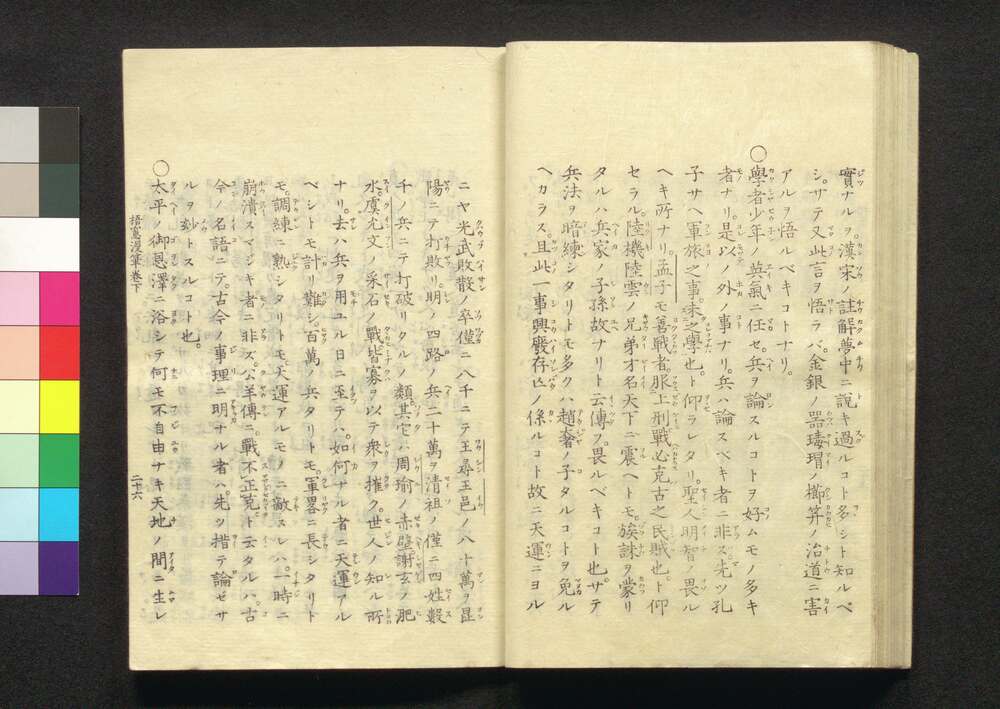 實ナルヲ漢宋ノ註解夢中ニ説キ過ルコト多シト知ルベ
シ。サテ又此言ヲ悟ラバ。金銀ノ器瑇瑁櫛笄ノ治道ニ害
アルヲ悟ルベキコトナリ。
○學者少年ノ英氣ニ任セ。兵ヲ論スルコトヲ好ムモノ多キ
者ナリ。是以ノ外ノ事ナリ。兵ハ論スベキ者ニ非ス。先ツ孔
子サヘ軍旅之事。未之學也。ト仰ラレタリ。聖人明智ノ畏ル
ヘキ所ナリ。孟子モ善戰者。服上刑戰必克古之民賊也。ト仰
セラル。陸機陸雲ノ兄弟才名天下ニ震ヘトモ。族誅ヲ蒙リ
タルハ。兵家ノ子孫故ナリト云傳フ。畏ルベキコト也。サテ
兵法ヲ暗練シタリトモ多クハ。趙奢ノ子タルコトヲ免ル
ヘカラス。且此一事興廢存亡ノ係ルコト故ニ天運ニヨル
ニヤ光武敗散ノ卒僅ニ八千ニテ王尋王邑ノ八十萬ヲ昆
陽ニテ打敗リ。明ノ四路ノ兵二十萬ヲ清祖ノ僅ニ四姓數
千ノ兵ニテ打破リタルノ類。其它ハ周瑜ノ赤壁謝玄ノ肥
水。虞允文ノ采石ノ戰。皆寡ヲ以テ衆ヲ摧ク。世人ノ知ル所
ナリ。去ハ兵ヲ用ユル日ニ至テハ。如何ナル者ニ天運アル
ベシトモ計リ難シ。百萬ノ兵タリトモ。軍畧ニ長シタリト
モ。調練ニ熟シタリトモ天運アルモノニ敵スレハ。一時ニ
崩潰スマジキ者ニ非ズ。公羊傳ニ。戰不正克ト云タルハ。古
今ノ名語ニテ。古今ノ事理ニ明ナル者ハ。先ツ措テ論ゼサ
ルヲ妙トスルコト也。
○太平ノ御恩澤ニ浴シテ何モ不自由ナキ天地ノ間ニ生レ
梧窓漫筆巻下
二十六